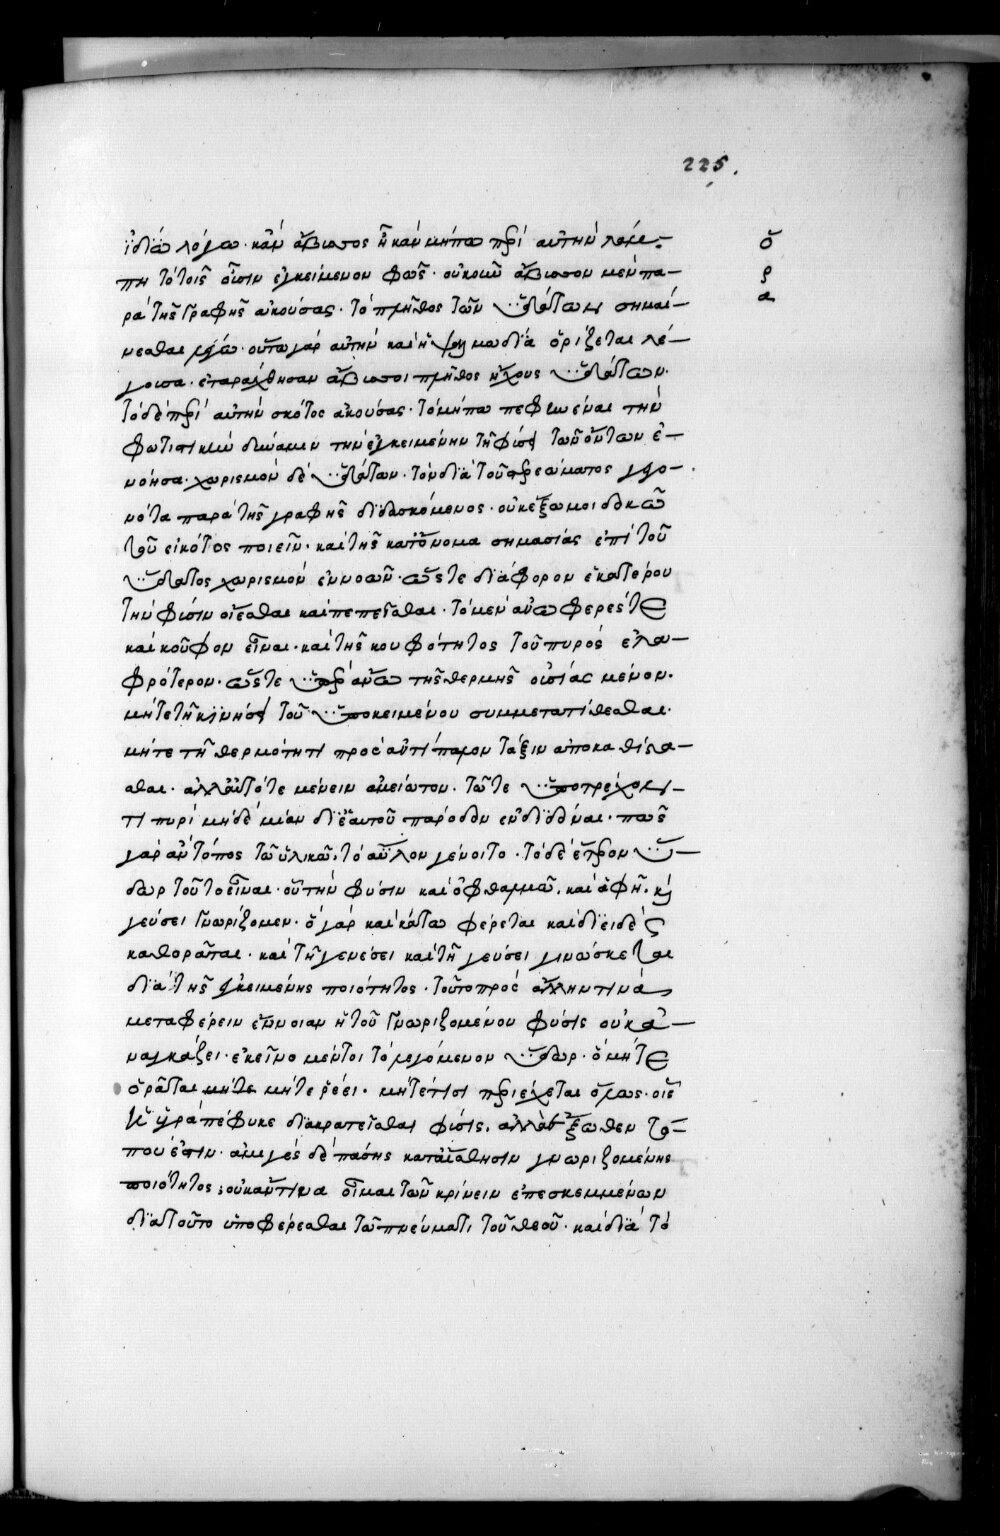 225.
ἰδίῳ λόγῳ· κἂν ἄβυσσος ᾖ κἂν μήπω περὶ αὐτὴν λάμ-
πῃ τὸ τοῖς οὖσιν ἐγκείμενον φῶς· οὐκοῦν ἄβυσσον μὲν πα-
ρὰ τῆς γραφῆς ἀκούσας· τὸ πλῆθος τῶν ὑδάτων σημαί-
νεσθαι οὕτω γὰρ αὐτὴν καὶ ἡ ψαλμωδία ὁρίζεται λέ-
γουσα· ἐταράχθησαν ἄβυσσοι πλῆθος ἤχους ὑδάτων·
τὸ δὲ περὶ αὐτὴν σκότος ἀκούσας· τὸ μήπω πεφηνέναι τὴν
φωτιστικὴν δύναμιν τὴν ἐγκειμένην τῇ φύσει τῶν ὄντων ἐ-
νόησα· χωρισμὸν δὲ ὑδάτων· τὸν διὰ τοῦ στερεώματος γεγο-
νότα παρὰ τῆς γραφῆς διδασκόμενος· οὐκ ἔξω μοι δοκῶ
τοῦ εἰκότος ποιεῖν· καὶ τῆς κατ' ὄνομα σημασίας ἐπὶ τοῦ
ὕδατος χωρισμὸν ἐννοῶν· ὥστε διάφορον ἑκατέρου
τὴν φύσιν οἴεσθαι καὶ πεπεῖσθαι· τὸ μὲν ἀνωφερές τε
καὶ κοῦφον εἶναι· καὶ τῆς κουφότητος τοῦ πυρὸς ἐλα-
φρότερον· ὥστε ὑπεράνω τῆς θερμῆς οὐσίας μένον·
μήτε τῇ κινήσει τοῦ ὑποκειμένου συμμετατίθεσθαι·
μήτε τῇ θερμότητι πρὸς ἀντίπαλον τάξιν ἀποκαθίστα-
σθαι· ἀλλ' αὐτό τε μένειν ἀμείωτον· τῷ τε ὑποτρέχον-
τι πυρὶ μηδὲ μίαν δι' ἑαυτοῦ πάροδον ἐνδιδόναι· πῶς
γὰρ ἂν τόπος τῷ ὑλικῷ, τὸ ἄϋλον γένοιτο· τὸ δὲ ἕτερον ὕ-
δωρ τοῦτο εἶναι· οὗ τὴν φύσιν καὶ ὀφθαλμῷ, καὶ ἁφῇ, κὶ
γεύσει γνωρίζομεν· ὃ γὰρ καὶ κάτω φέρεται καὶ διειδὲς
καθορᾶται· καὶ τῇ γενέσει καὶ τῇ γεύσει γινώσκεται
διὰ τῆς ἐγκειμένης ποιότητος· τοῦτο πρὸς ἄλλην τινὰ
μεταφέρειν ἔννοιαν ἡ τοῦ γνωριζομένου φύσις οὐκ ἀ-
ναγκάζει· ἐκεῖνο μέντοι τὸ λεγόμενον ὕδωρ· ὃ μήτε
ὁρᾶται μήτε ῥέει· μήτε τισι περιέχεται ὅροις· οἷς
ἡ ὑγρὰ πέφυκε διακρατεῖσθαι φύσις, ἀλλ' ἔξωθεν τό-
που ἐστιν· ἀμιγὲς δὲ πάσης κατ' αἴσθησιν γνωριζομένης
ποιότητος; οὐκ ἄν τινα οἶμαι τῶν κρίνειν ἐπεσκεμμένων
διὰ τοῦτο ὑποφέρεσθαι τῷ πνεύματι τοῦ θεοῦ· καὶ διὰ τὸ
ὅ
ρ
α